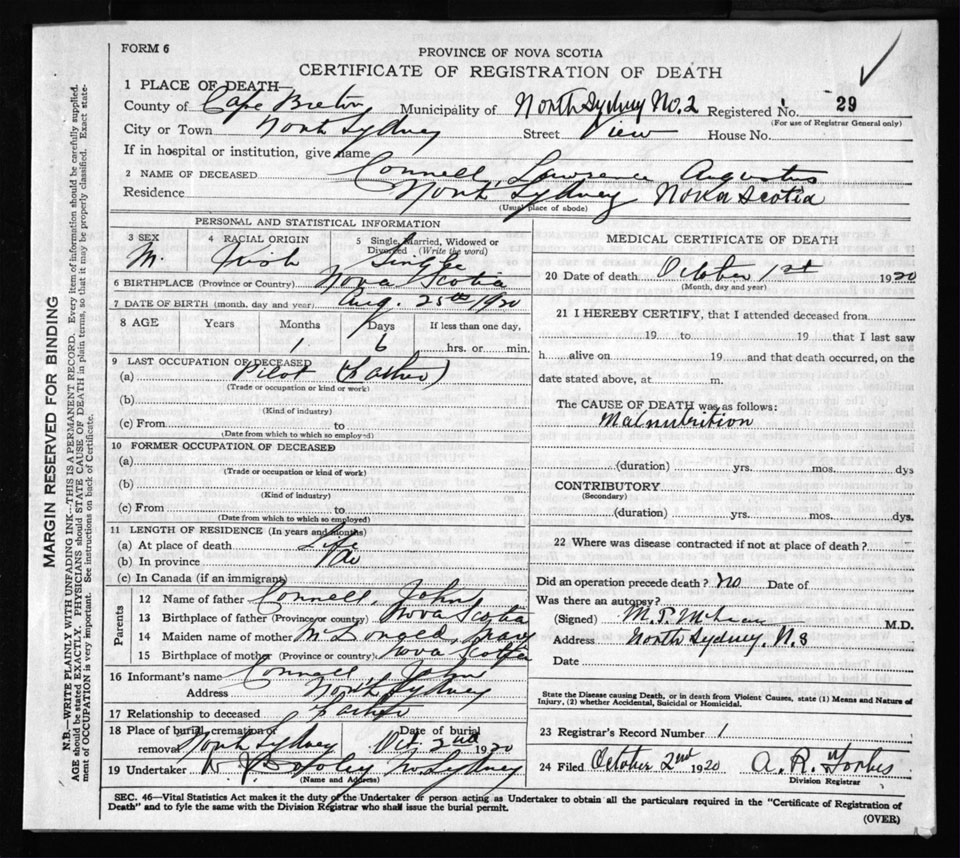 FORM 6
PROVINCE OF NOVA SCOTIA
CERTIFICATE OF REGISTRATION OF DEATH
1 PLACE OF DEATH
County of Cape Breton Municipality of North Sydney No. 2 Registered No. 29
(For use of Registrar General only)
City or Town North Sydney Street View House No.
If in hospital or institution, give name
2 NAME OF DECEASED Connell, Lawrence Augustus
Residence North Sydney Nova Scotia
(Usual place of abode)
PERSONAL AND STATISTICAL INFORMATION
3 SEX M. 4 RACIAL ORIGIN Irish 5 Single, Married, Widowed or Divorced (Write the word) Single
6 BIRTHPLACE (Province or Country) Nova Scotia
7 DATE OF BIRTH (month, day and year) Aug. 25th 1920
8 AGE Years Months 1 Days 6 If less than one day, hrs. or min.
9 LAST OCCUPATION OF DECEASED
(a) Pilot (Father)
(Trade or occupation or kind or work)
(b)
(Kind of industry)
(c) From to
(Date from which to which so employed)
10 FORMER OCCUPATION OF DECEASED
(a)
(Trade or occupation or kind of work)
(b)
(Kind of industry)
(c) From to
(Date from which to which so employed)
11 LENGTH OF RESIDENCE (In years and months)
(a) At place of death Life
(b) In province Do
(c) In Canada (if an immigrant)
Parents
12 Name of father Connell, John
13 Birthplace of father (Province or country) Nova Scotia
14 Maiden name of mother Mary
15 Birthplace of mother (Province or country) Nova Scotia
16 Informant's name Connell, John
Address North Sydney
17 Relationship to deceased Father
18 Place of burial, cremation or removal North Sydney Date of burial Oct. 2nd 1920
19 Undertaker No Sydney
(Name and Address)
MEDICAL CERTIFICATE OF DEATH
20 Date of death October 1st 1920
(Month, day and year)
21 I HEREBY CERTIFY, that I attended deceased from
19 to 19 that I last saw
h alive on 19 and that death occurred, on the
date stated above, at m.
The CAUSE OF DEATH was as follows:
Malnutrition
(duration) yrs. mos. dys
CONTRIBUTORY
(Secondary)
(duration) yrs. mos. dys.
22 Where was disease contracted if not at place of death?
Did an operation precede death? No Date of
Was there an autopsy?
(Signed) M.D.
Address North Sydney, N.S
Date
State the Disease causing Death, or in death from Violent Causes, state (1) Means and Nature of
Injury, (2) whether Accidental, Suicidal or Homicidal.
23 Registrar's Record Number 1
24 Filed October 2nd 1920 A. R. Forbes
Division Registrar
SEC. 46—Vital Statistics Act makes it the duty of the Undertaker or person acting as Undertaker to obtain all the particulars required in the "Certificate of Registration of
Death" and to fyle the same with the Division Registrar who shall issue the burial permit.
(OVER)
MARGIN RESERVED FOR BINDING
N.B.—WRITE PLAINLY WITH UNFADING INK—THIS IS A PERMANENT RECORD. Every item of information should be carefully supplied.
AGE should be stated EXACTLY. PHYSICIANS should STATE CAUSE OF DEATH in plain terms, so that it may be properly classified. Exact state-
ment of OCCUPATION is very important. See instructions on back of Certificate.